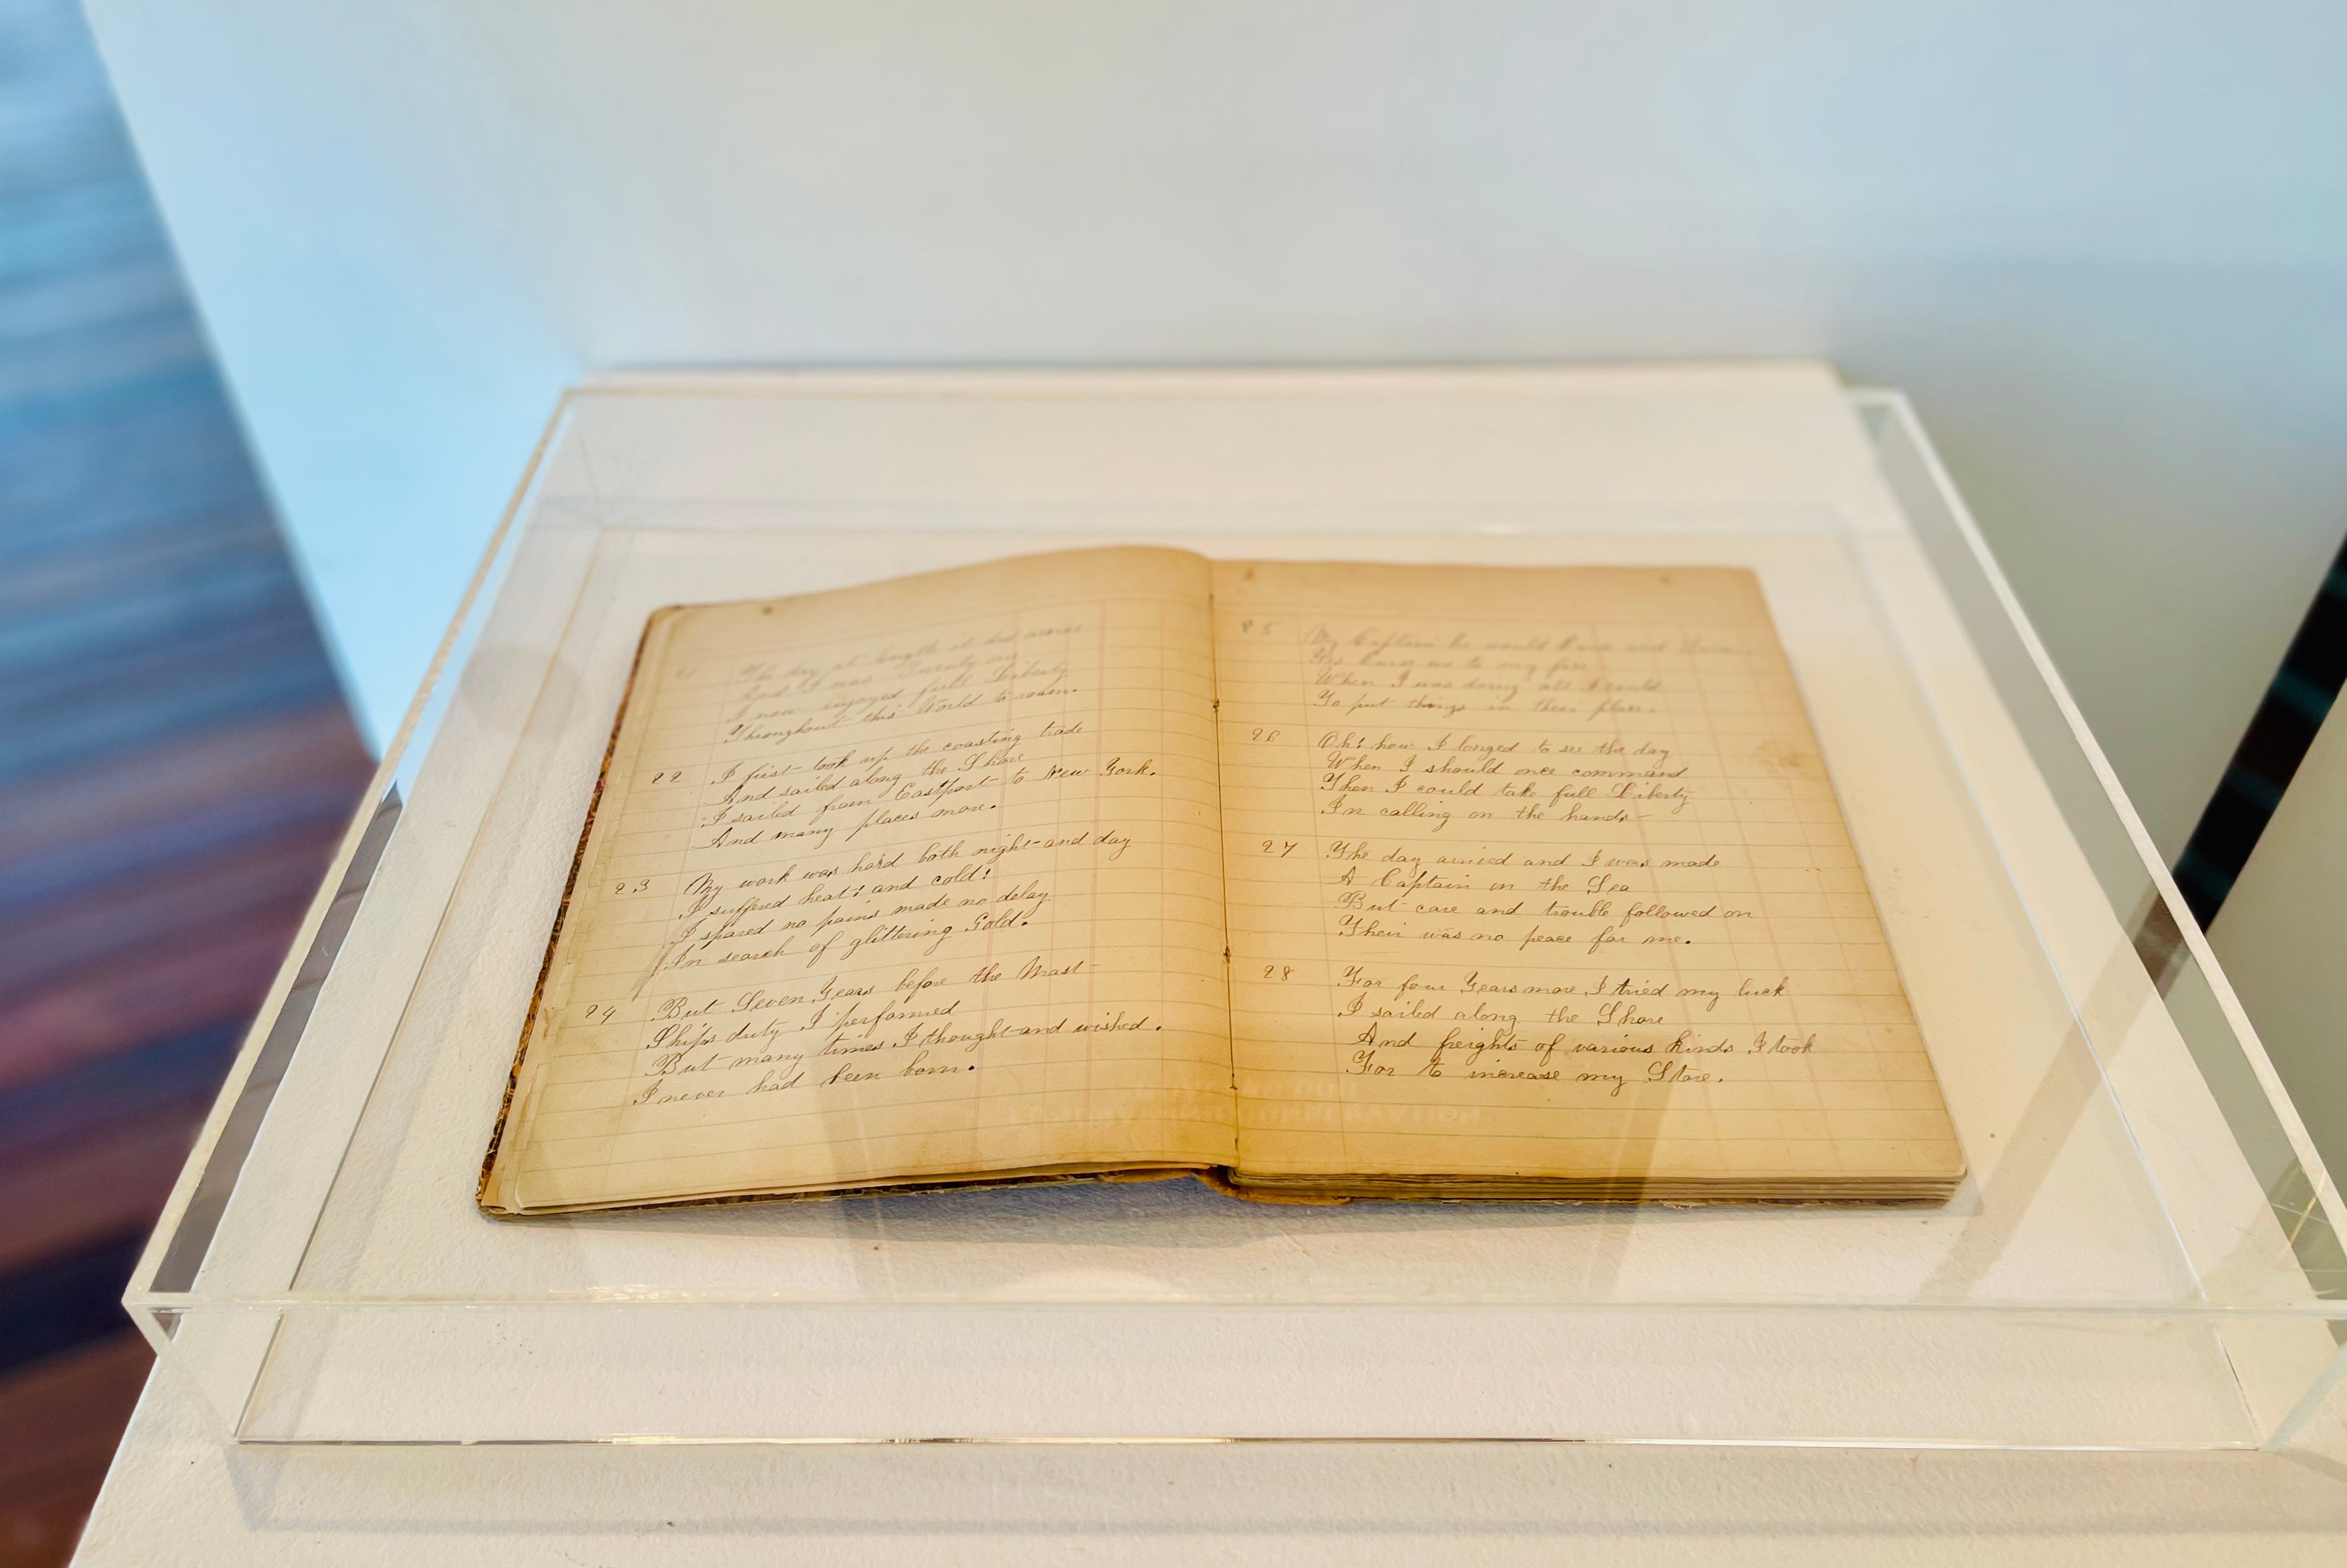 21 The day at length it did arrive
And I was Twenty one
I now enjoyed full Liberty
Throughout this World to roam.
22 I first took up the coasting trade
And sailed along the Shore
I sailed from Eastport to New York.
And many places more.
23 My work was hard both night and day
I suffered heat! and cold!
I spared no pains made no delay
In search of glittering Gold.
24 But Seven Years before the Mast
Ships duty I performed
But many times I thought and wished.
I never had been born.
25 My Captain he would and
me to my
When I was doing all I could
To put things in their place.
26 Oh! how I longed to see the day
When I should once command
Then I could take full Liberty
In calling on the hands
27 The day arrived and I was made
A Captain on the Sea
But care and trouble followed on
Their was no peace for me.
28 For four Years more I tried my luck
I sailed along the Shore
And freights of various kinds I took
For to increase my Store.